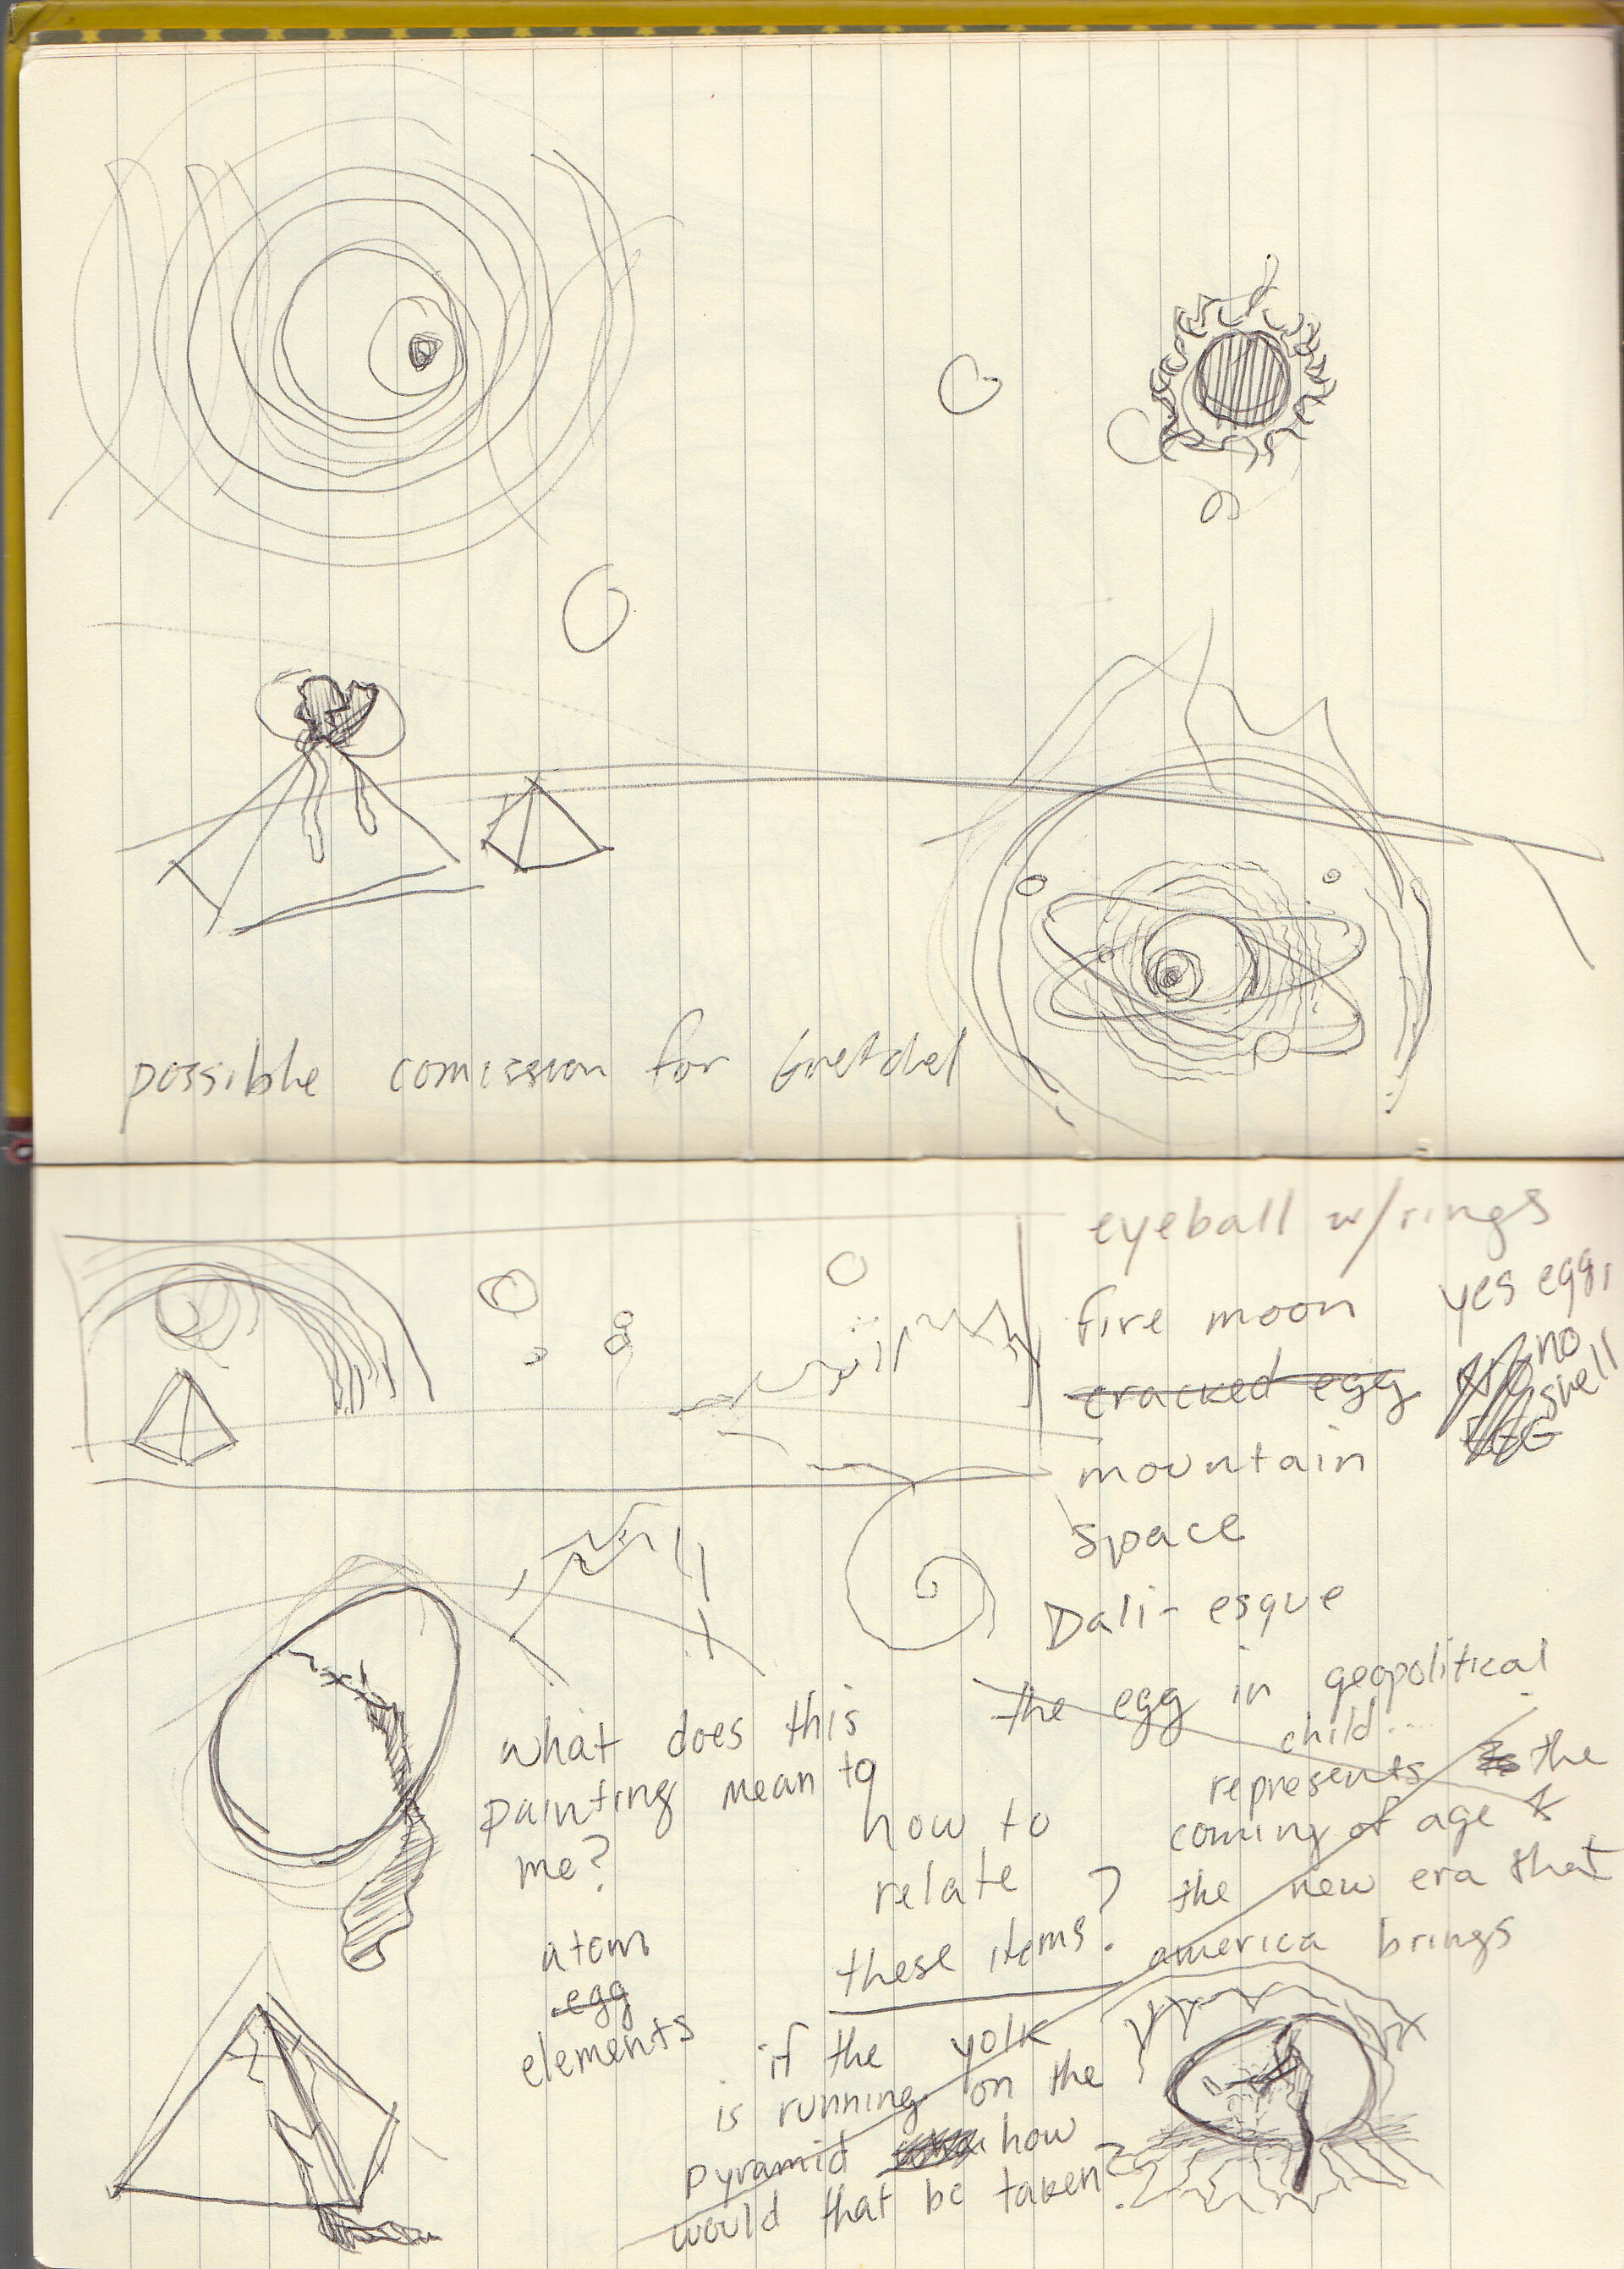 possible comission for Gretchel
eyeball w/rings
fire moon
cracked egg
yes egg,
no
shell
EGG
mountain
space
Dali-esque
the egg in geopolitical
child...
represents the
coming of age &
the new era that
america brings
what does this
painting mean to
me?
how to
relate
these items?
atom
egg
elements
if the yolk
is running on the
pyramid how
would that be taken?